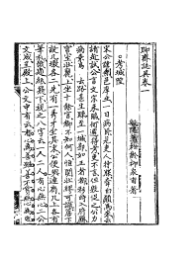 聊齋誌異卷一
○考城隍
宋公諱燾邑廩生一日病臥見吏人持牒牽白顛馬來云
請赴試公言文宗未臨何遽得考吏不言但敦促之公力
病乘馬從去路甚生疎至一城郭如王者都移時入府廨
宮室壯麗上坐十餘官都不知何人惟關壯繆可識簷下
設几墩各二先有一秀才坐其末公便與連肩几上各有
筆札俄題紙飛下視之八字云一人二人有心無心二公
文成呈殿上公文中有云有心為善雖善不賞無心